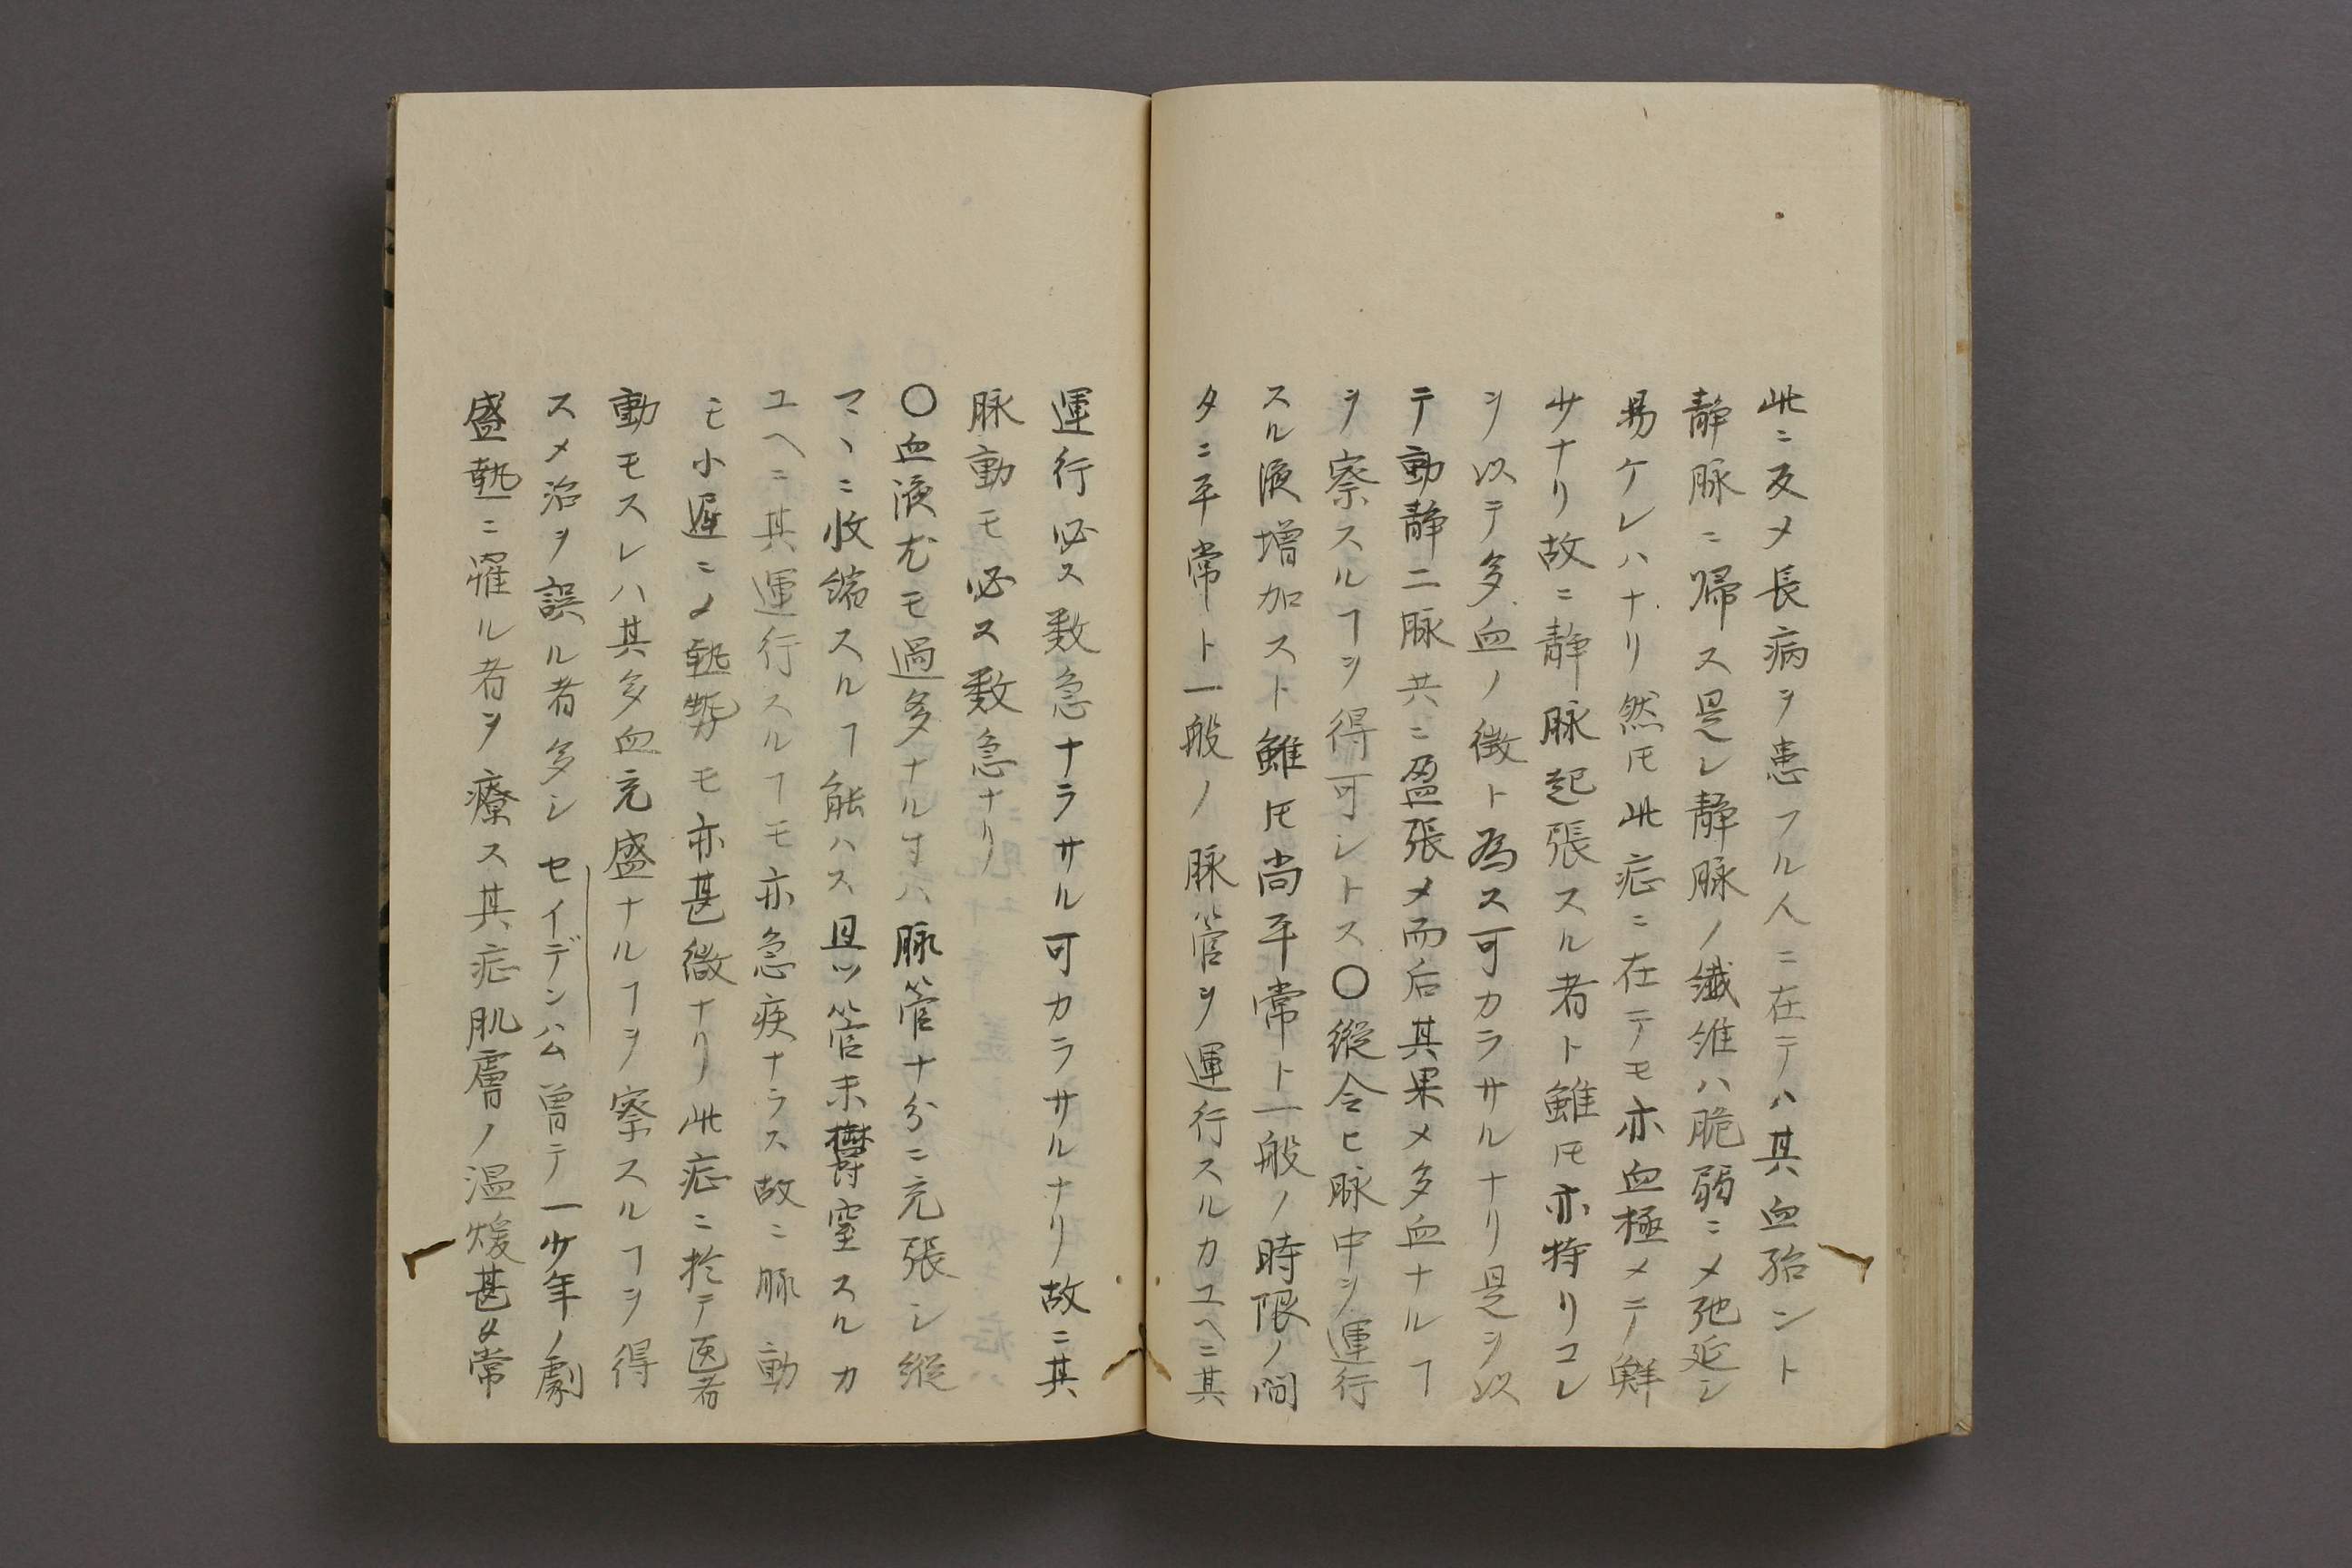 此ニ反メ長病ヲ患フル人ニ在テハ其血殆ント
静脉ニ帰ス是レ静脉ノ纎維ハ脆弱ニメ弛延シ
易ケレハナリ然𪜈此症ニ在テモ亦血極メテ鮮
少ナリ故ニ静脉起張スル者ト雖𪜈亦特リコレ
ヲ以テ多血ノ徴ト為ス可カラサルナリ是ヲ以
テ動静二脉共ニ盈張メ而后其果メ多血ナルヿ
ヲ察スルヿヲ得可シトス〇縦令ヒ脉中ヲ運行
スル液増加スト雖𪜈尚平常ト一般ノ時限ノ間
タニ平常ト一般ノ脉管ヲ運行スルカユヘニ其
運行必ス数急ナラサル可カラサルナリ故ニ其
脉動モ必ス数急ナリ
〇血液尤モ過多ナルすハ脉管十分ニ充張シ縦
マヽニ收縮スルヿ能ハス且ツ管末欝窒スルカ
ユヘニ其運行スルヿモ亦急疾ナラス故ニ脉動
モ小遅ニメ熱勢モ亦甚微ナリ此症ニ於テ医者
動モスレハ其多血充盛ナルヿヲ察スルヿヲ得
スメ治ヲ誤ル者多シセイデン公曽テ一少年ノ劇
盛熱ニ罹ル者ヲ療ス其症肌膚ノ温煖甚メ常